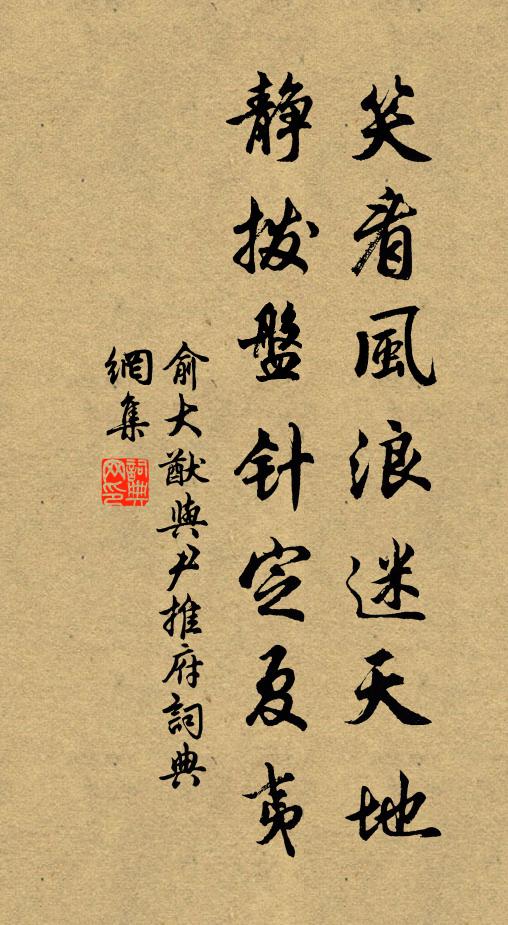 笑看風浪迷天地
靜撥盤针定夏夷
俞大猷與尹推府詞典
網集
詞典
网印